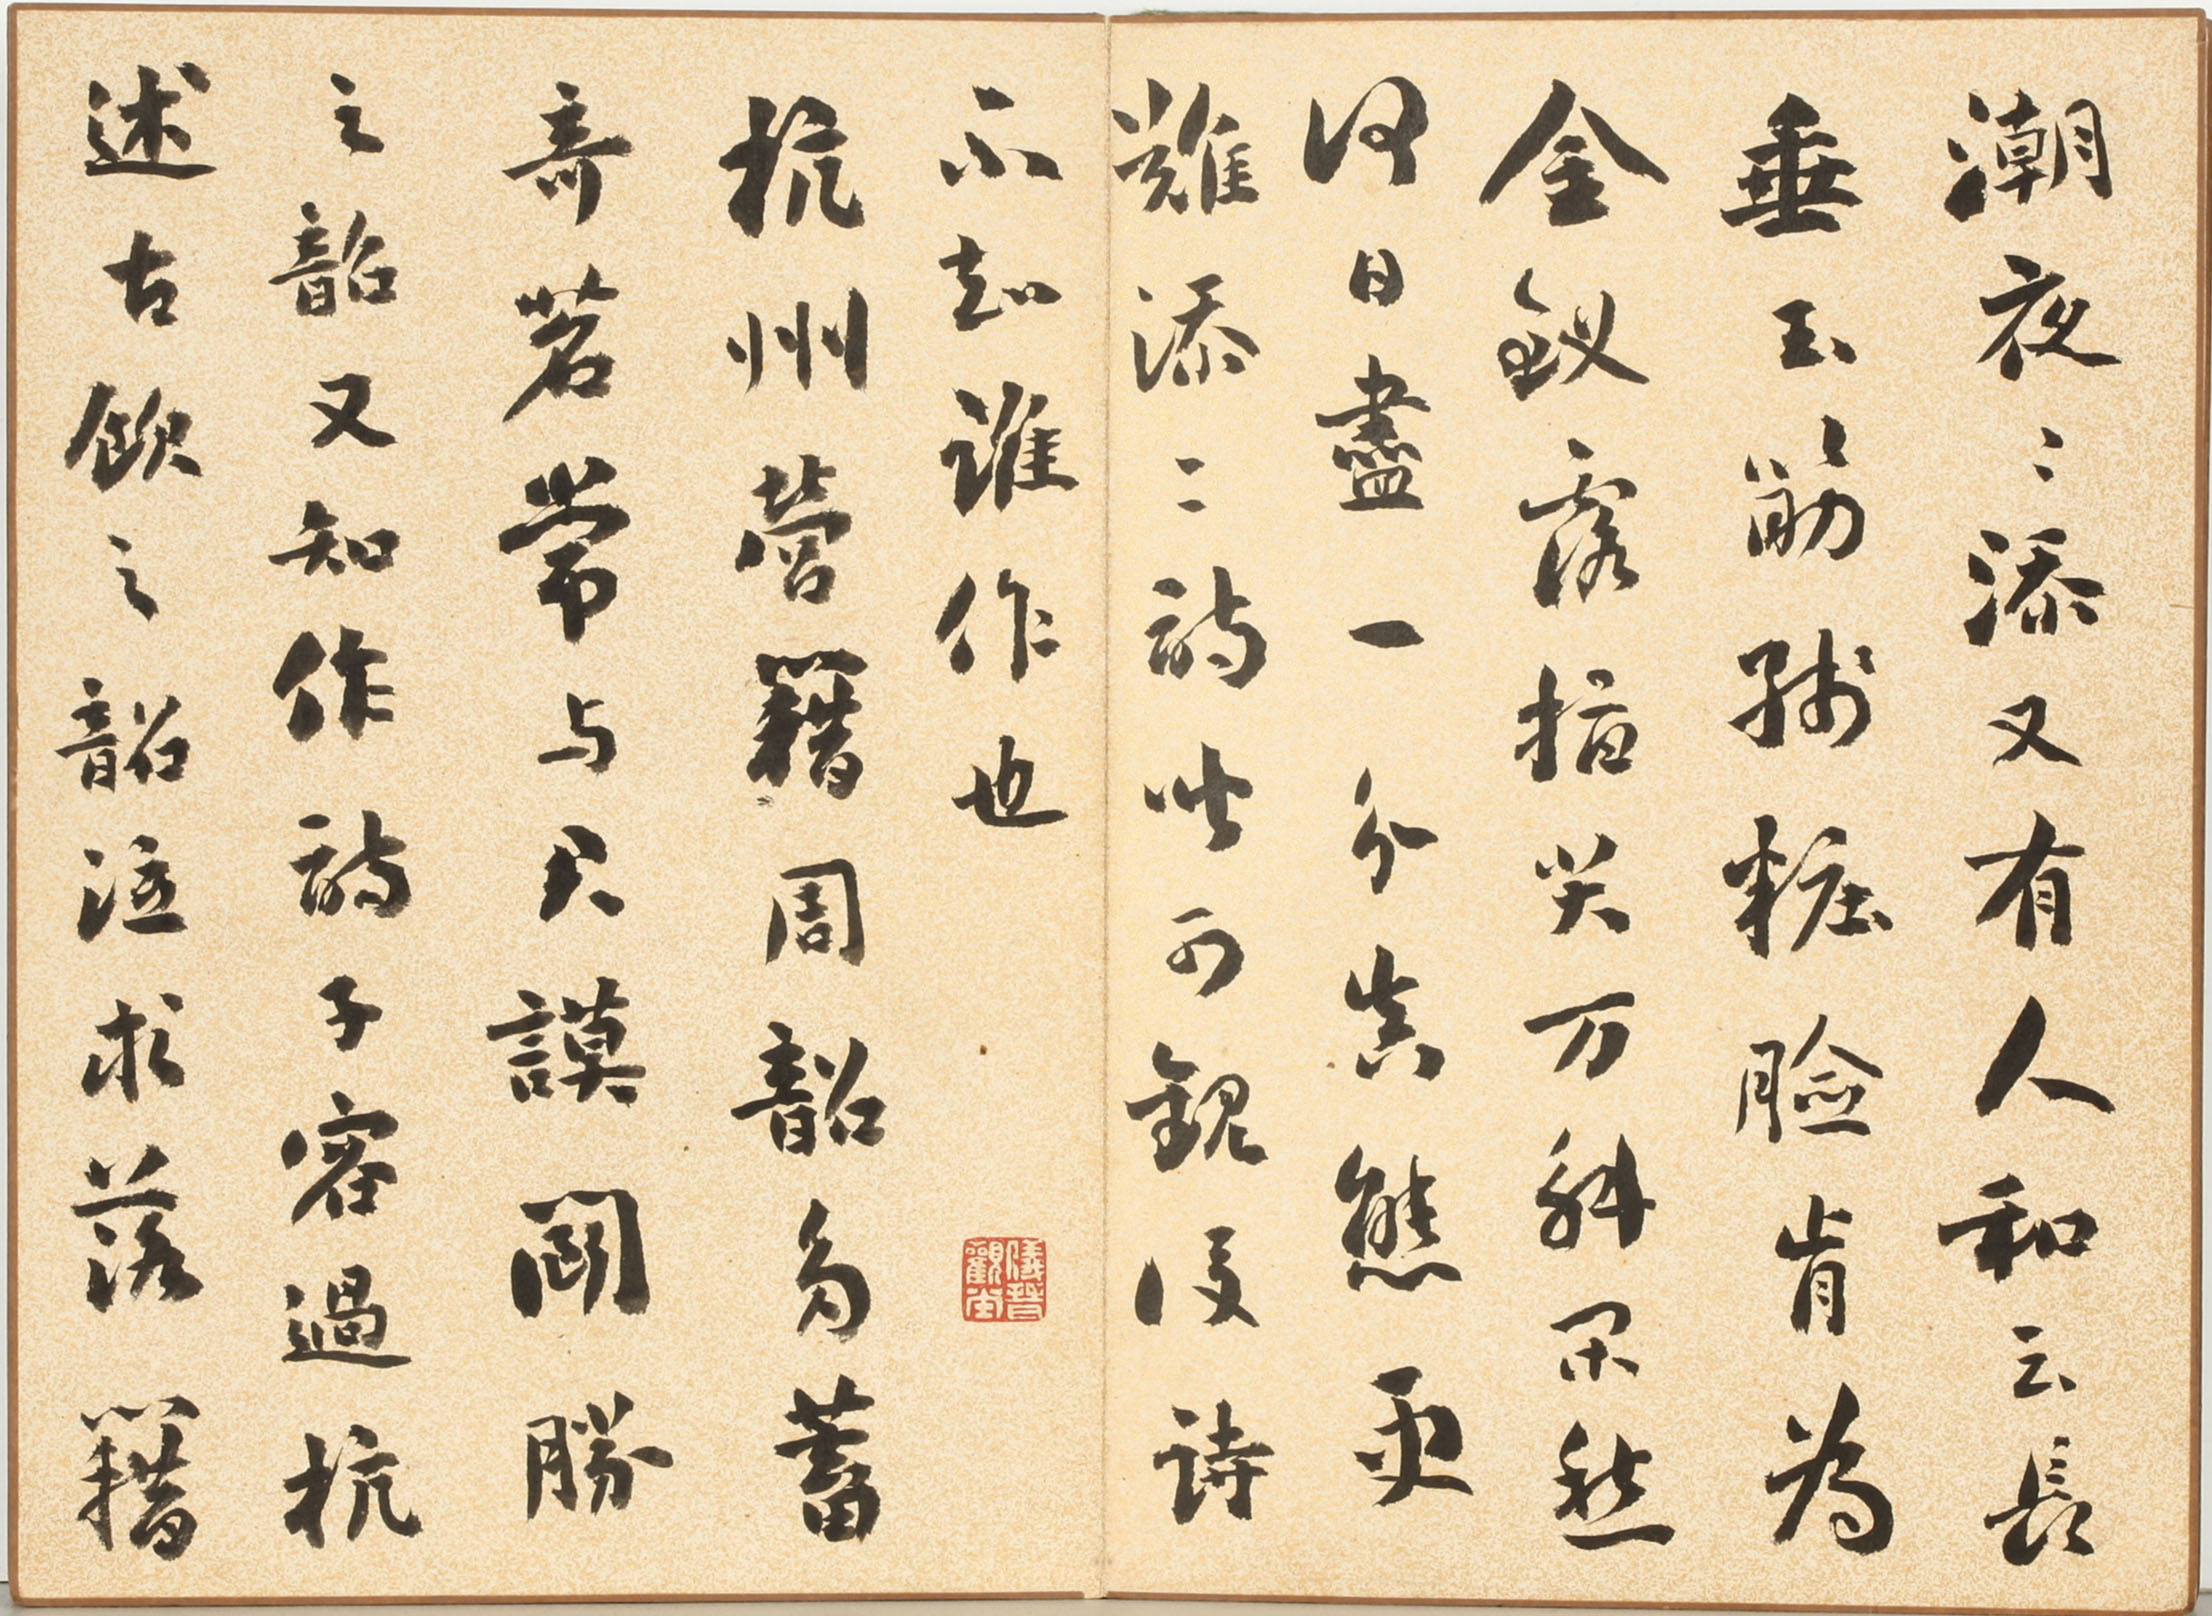 潮夜〻添又有人和云長
垂玉筯殘粧臉肯為
金釵露指尖万斛閑愁
何日盡一分真態更
難添二詩皆可觀後詩
不知誰作也
杭州營籍周韶多蓄
奇茗常与君謨鬬勝
之韶又知作詩子容過杭
述古飲之韶泣求落籍
儀晉觀堂